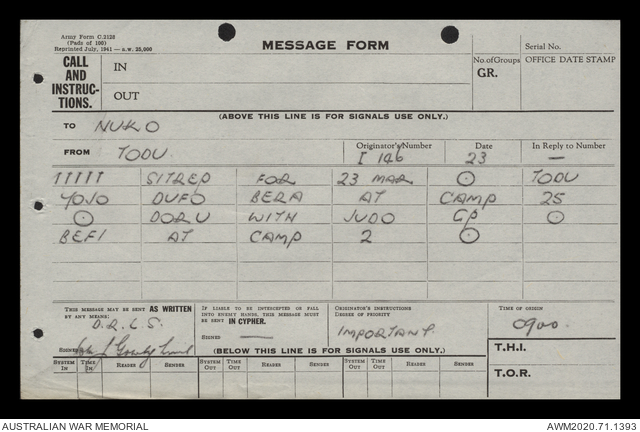 Army Form C.2128
(Pads of 100)
Reprinted July, 1941 — n.w. 25,000
MESSAGE FORM
Serial No.
CALL AND INSTRUC-TIONS.
IN
OUT
No. of Groups
GR.
OFFICE DATE STAMP
(ABOVE THIS LINE IS FOR SIGNALS USE ONLY.)
TO NUKO
FROM TODU
Originator's Number
I 146
Date
23
In Reply to Number
—
11111 SITREP FOR 23 MAR ⊙ TODU
YOJO DUFO BERA AT CAMP 25
⊙ DORU WITH JUDO GP ⊙
BEFI AT CAMP 2 ⊙
THIS MESSAGE MAY BE SENT AS WRITTEN BY ANY MEANS:
D.R.L.S.
SIGNED
IF LIABLE TO BE INTERCEPTED OR FALL INTO ENEMY HANDS, THIS MESSAGE MUST BE SENT IN CYPHER.
SIGNED —
ORIGINATOR'S INSTRUCTIONS DEGREE OF PRIORITY
IMPORTANT.
TIME OF ORIGIN
0900.
(BELOW THIS LINE IS FOR SIGNALS USE ONLY.)
T.H.I.
T.O.R.
SYSTEM IN TIME IN READER SENDER SYSTEM OUT TIME OUT READER SENDER SYSTEM OUT TIME OUT READER SENDER
AUSTRALIAN WAR MEMORIAL
AWM2020.71.1393